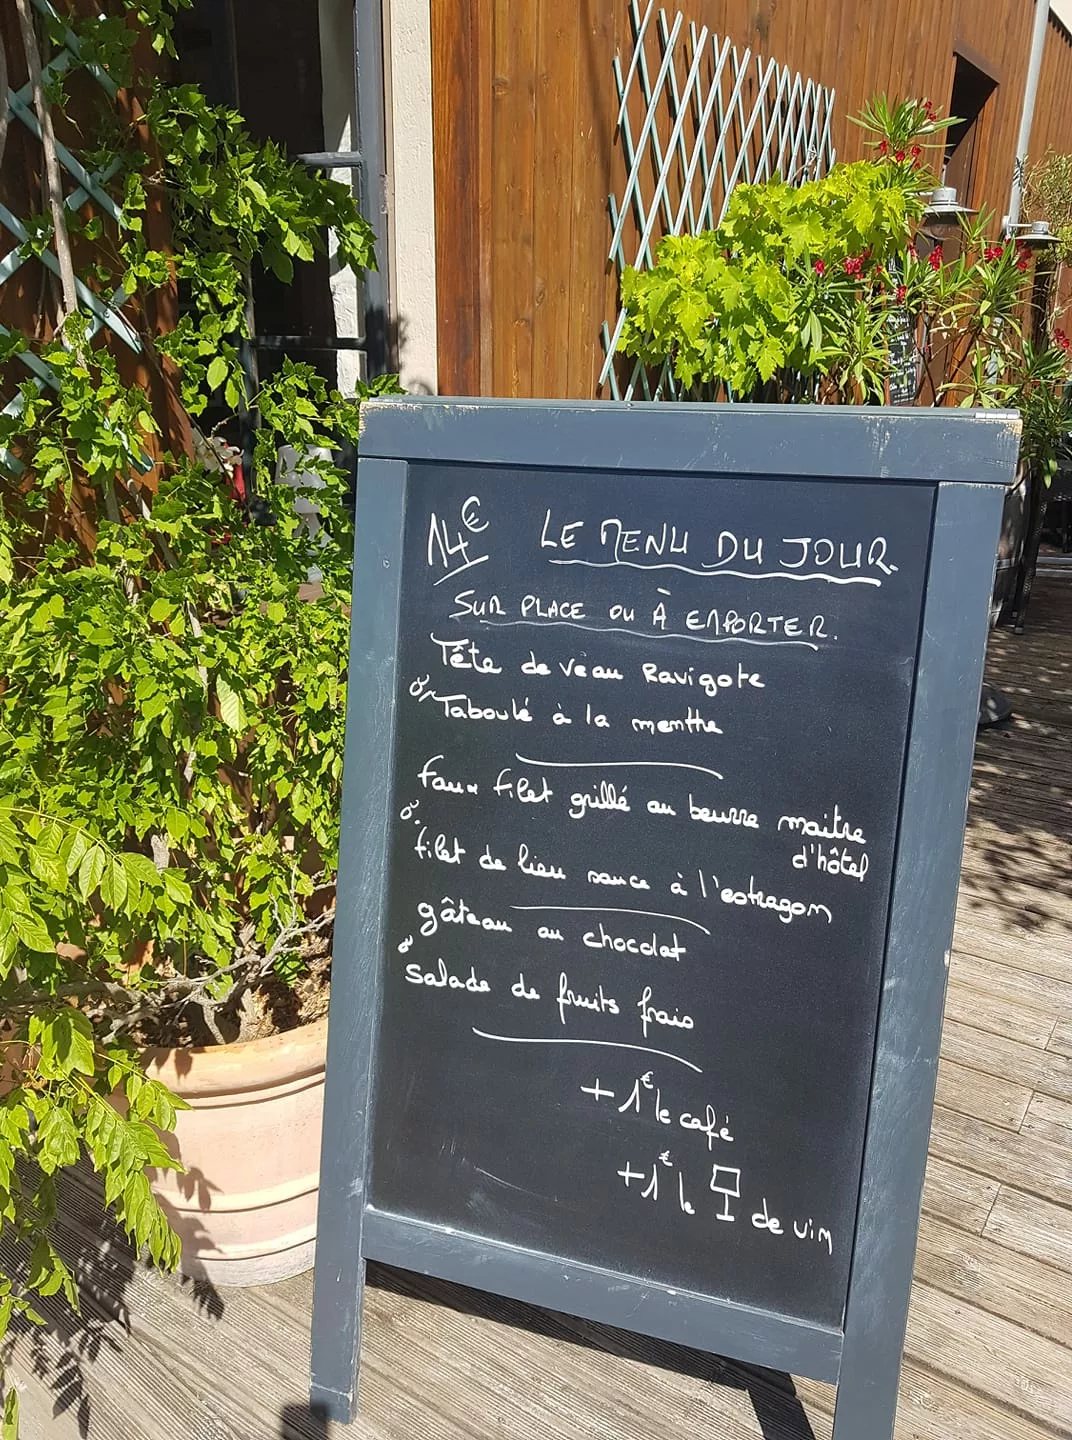 14€ LE MENU DU JOUR.
SUR PLACE OU À EMPORTER.
Tête de veau Ravigote
ou Taboulé à la menthe
faux filet grillé au beurre maitre
d'hôtel
ou
filet de lieu sauce à l'estragon
gâteau au chocolat
ou
salade de fruits frais
+1€ le café
+1€ le de vin